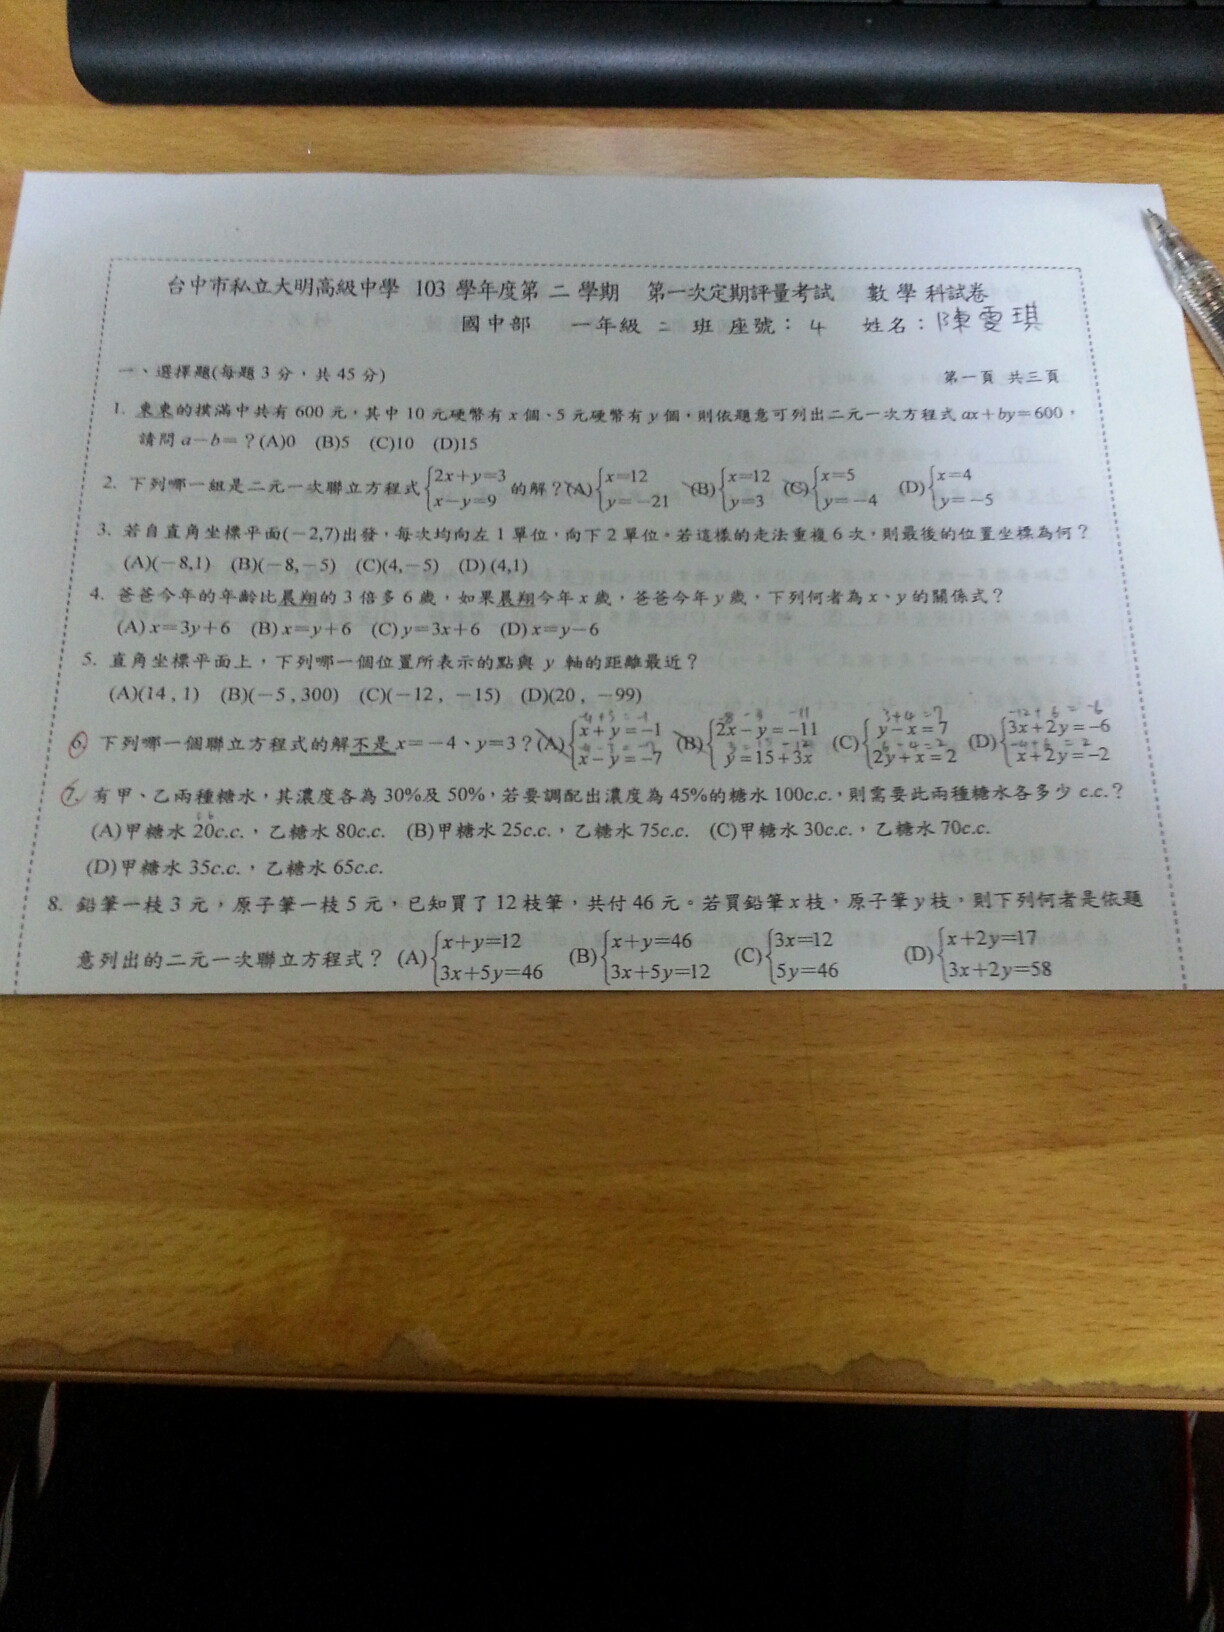 台中市私立大明高級中學 103 學年度第 二 學期 第一次定期評量考試 數學科試卷
國中部 一年級 二 班 座號：4 姓名：陳雯琪
一、選擇題(每題 3 分，共 45 分) 第一頁 共三頁
1. 東東的撲滿中共有 600 元，其中 10 元硬幣有 x 個、5 元硬幣有 y 個，則依題意可列出二元一次方程式 ax+by=600，
請問 a-b=？(A)0 (B)5 (C)10 (D)15
2. 下列哪一組是二元一次聯立方程式{2x+y=3 x-y=9 的解？(A){x=12 y=-21 (B){x=12 y=3 (C){x=5 y=-4 (D){x=4 y=-5
3. 若自直角坐標平面(-2,7)出發，每次均向左 1 單位，向下 2 單位。若這樣的走法重複 6 次，則最後的位置坐標為何？
(A)(-8,1) (B)(-8,-5) (C)(4,-5) (D)(4,1)
4. 爸爸今年的年齡比晨翔的 3 倍多 6 歲，如果晨翔今年 x 歲，爸爸今年 y 歲，下列何者為 x、y 的關係式？
(A) x=3y+6 (B) x=y+6 (C) y=3x+6 (D) x=y-6
5. 直角坐標平面上，下列哪一個位置所表示的點與 y 軸的距離最近？
(A)(14, 1) (B)(-5, 300) (C)(-12, -15) (D)(20, -99)
-4+3=-1 3+4=7
6. 下列哪一個聯立方程式的解不是 x=-4、y=3？(A){x+y=-1 x-y=-7 (B){2x-y=-11 y=15+3x (C){y-x=7 2y+x=2 (D){3x+2y=-6 x+2y=-2
6-4=2
7. 有甲、乙兩種糖水，其濃度各為 30%及 50%，若要調配出濃度為 45%的糖水 100c.c.，則需要此兩種糖水各多少 c.c.？
(A)甲糖水 20c.c.，乙糖水 80c.c. (B)甲糖水 25c.c.，乙糖水 75c.c. (C)甲糖水 30c.c.，乙糖水 70c.c.
(D)甲糖水 35c.c.，乙糖水 65c.c.
8. 鉛筆一枝 3 元，原子筆一枝 5 元，已知買了 12 枝筆，共付 46 元。若買鉛筆 x 枝，原子筆 y 枝，則下列何者是依題
意列出的二元一次聯立方程式？ (A){x+y=12 3x+5y=46 (B){x+y=46 3x+5y=12 (C){3x=12 5y=46 (D){x+2y=17 3x+2y=58